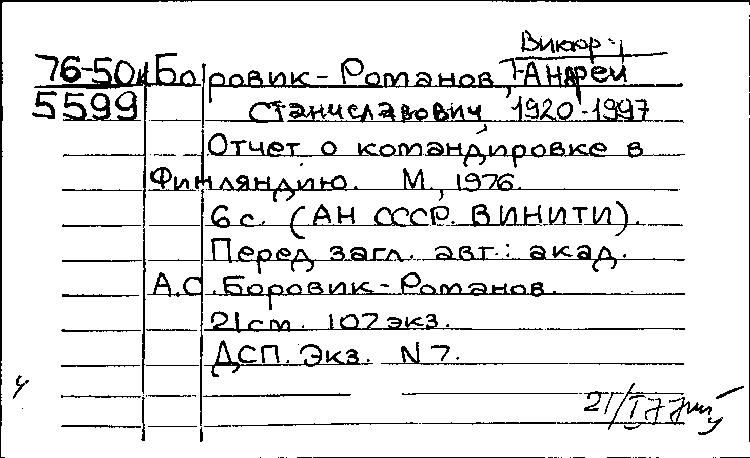 Виктор-
76-50к Боровик-Романов, Андрей
5599 Станиславович, 1920-1997
Отчет о командировке в
Финляндию. М., 1976.
6 с. (АН СССР. ВИНИТИ).
Перед загл. авт.: акад.
А.С. Боровик-Романов.
21 см. 107 экз.
ДСП. Экз. N 7.